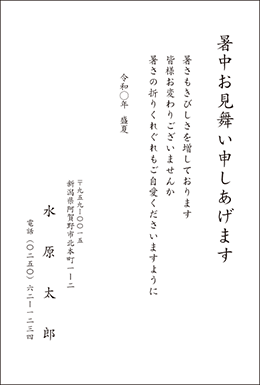 暑中お見舞い申しあげます
暑さもきびしさを増しております
皆様お変わりございませんか
暑さの折りくれぐれもご自愛くださいますように
令和〇年 盛夏
〒九五九−〇〇一五
新潟県阿賀野市北本町一−二
水原太郎
電話(〇二五〇)六二−一二三四